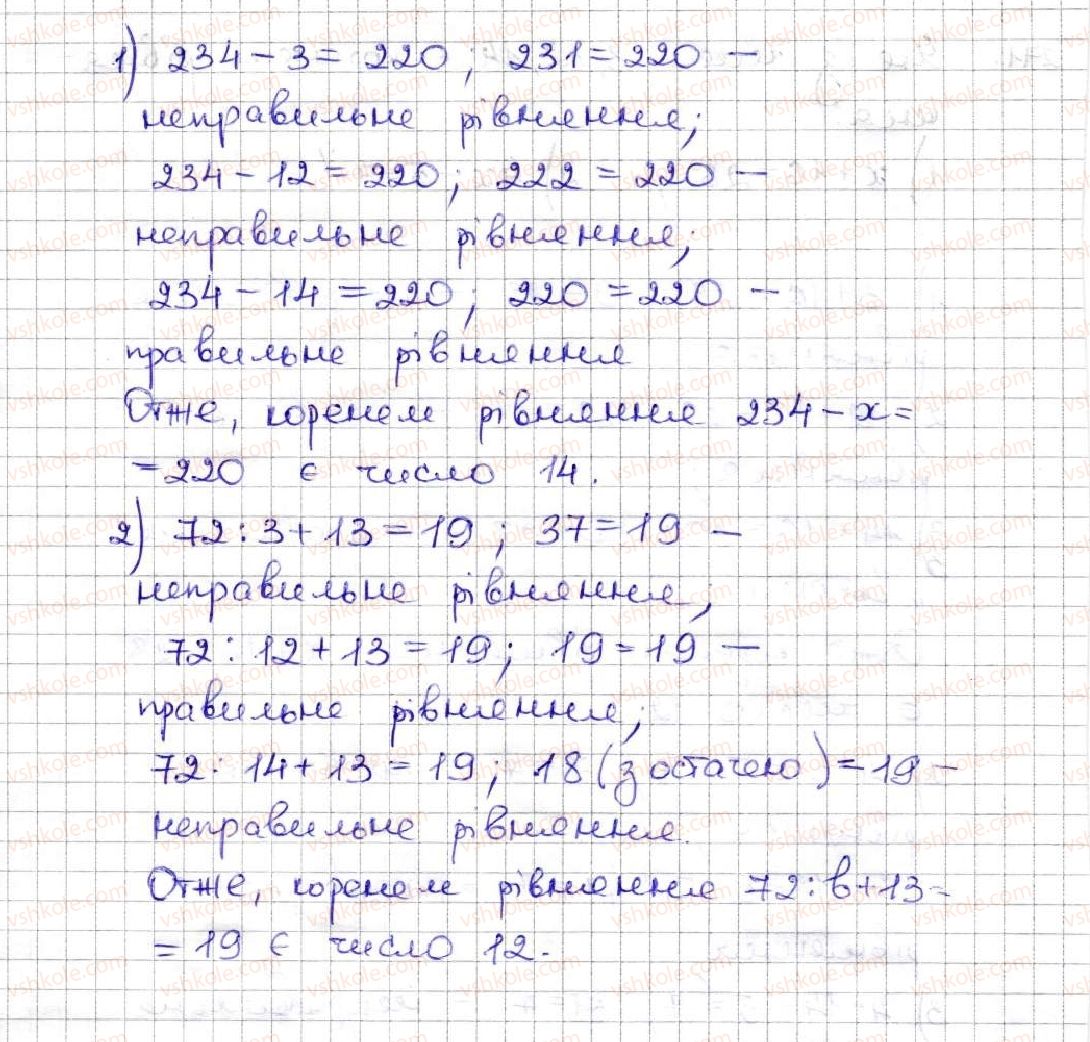 1) 234 - 3 = 220; 231 = 220 -
неправильне рівняння;
234 - 12 = 220; 222 = 220 -
неправильне рівняння;
234 - 14 = 220; 220 = 220 -
правильне рівняння
Отже, коренем рівняння 234 - x =
= 220 є число 14.
2) 72 : 3 + 13 = 19; 37 = 19 -
неправильне рівняння,
72 : 12 + 13 = 19; 19 = 19 -
правильне рівняння;
72 : 14 + 13 = 19; 18 (з остачею) = 19 -
неправильне рівняння.
Отже, коренем рівняння 72 : b + 13 =
= 19 є число 12.